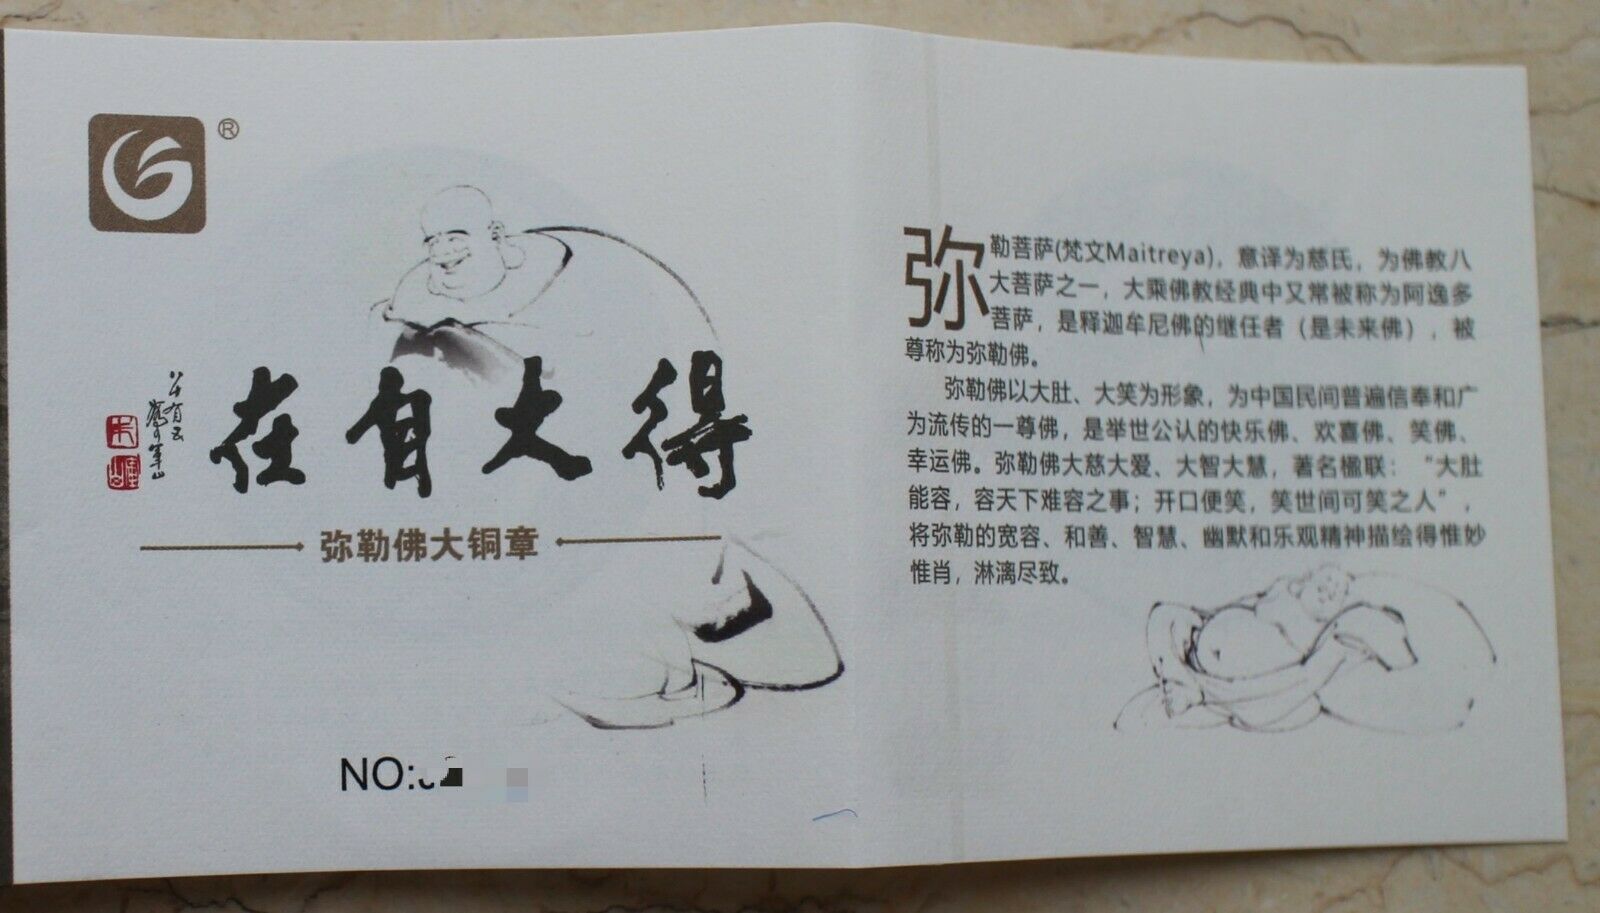 ®
得大自在
弥勒佛大铜章
NO:
弥勒菩萨(梵文Maitreya)，意译为慈氏，为佛教八
大菩萨之一，大乘佛教经典中又常被称为阿逸多
菩萨，是释迦牟尼佛的继任者（是未来佛），被
尊称为弥勒佛。
弥勒佛以大肚、大笑为形象，为中国民间普遍信奉和广
为流传的一尊佛，是举世公认的快乐佛、欢喜佛、笑佛、
幸运佛。弥勒佛大慈大爱、大智大慧，著名楹联：“大肚
能容，容天下难容之事；开口便笑，笑世间可笑之人”，
将弥勒的宽容、和善、智慧、幽默和乐观精神描绘得惟妙
惟肖，淋漓尽致。